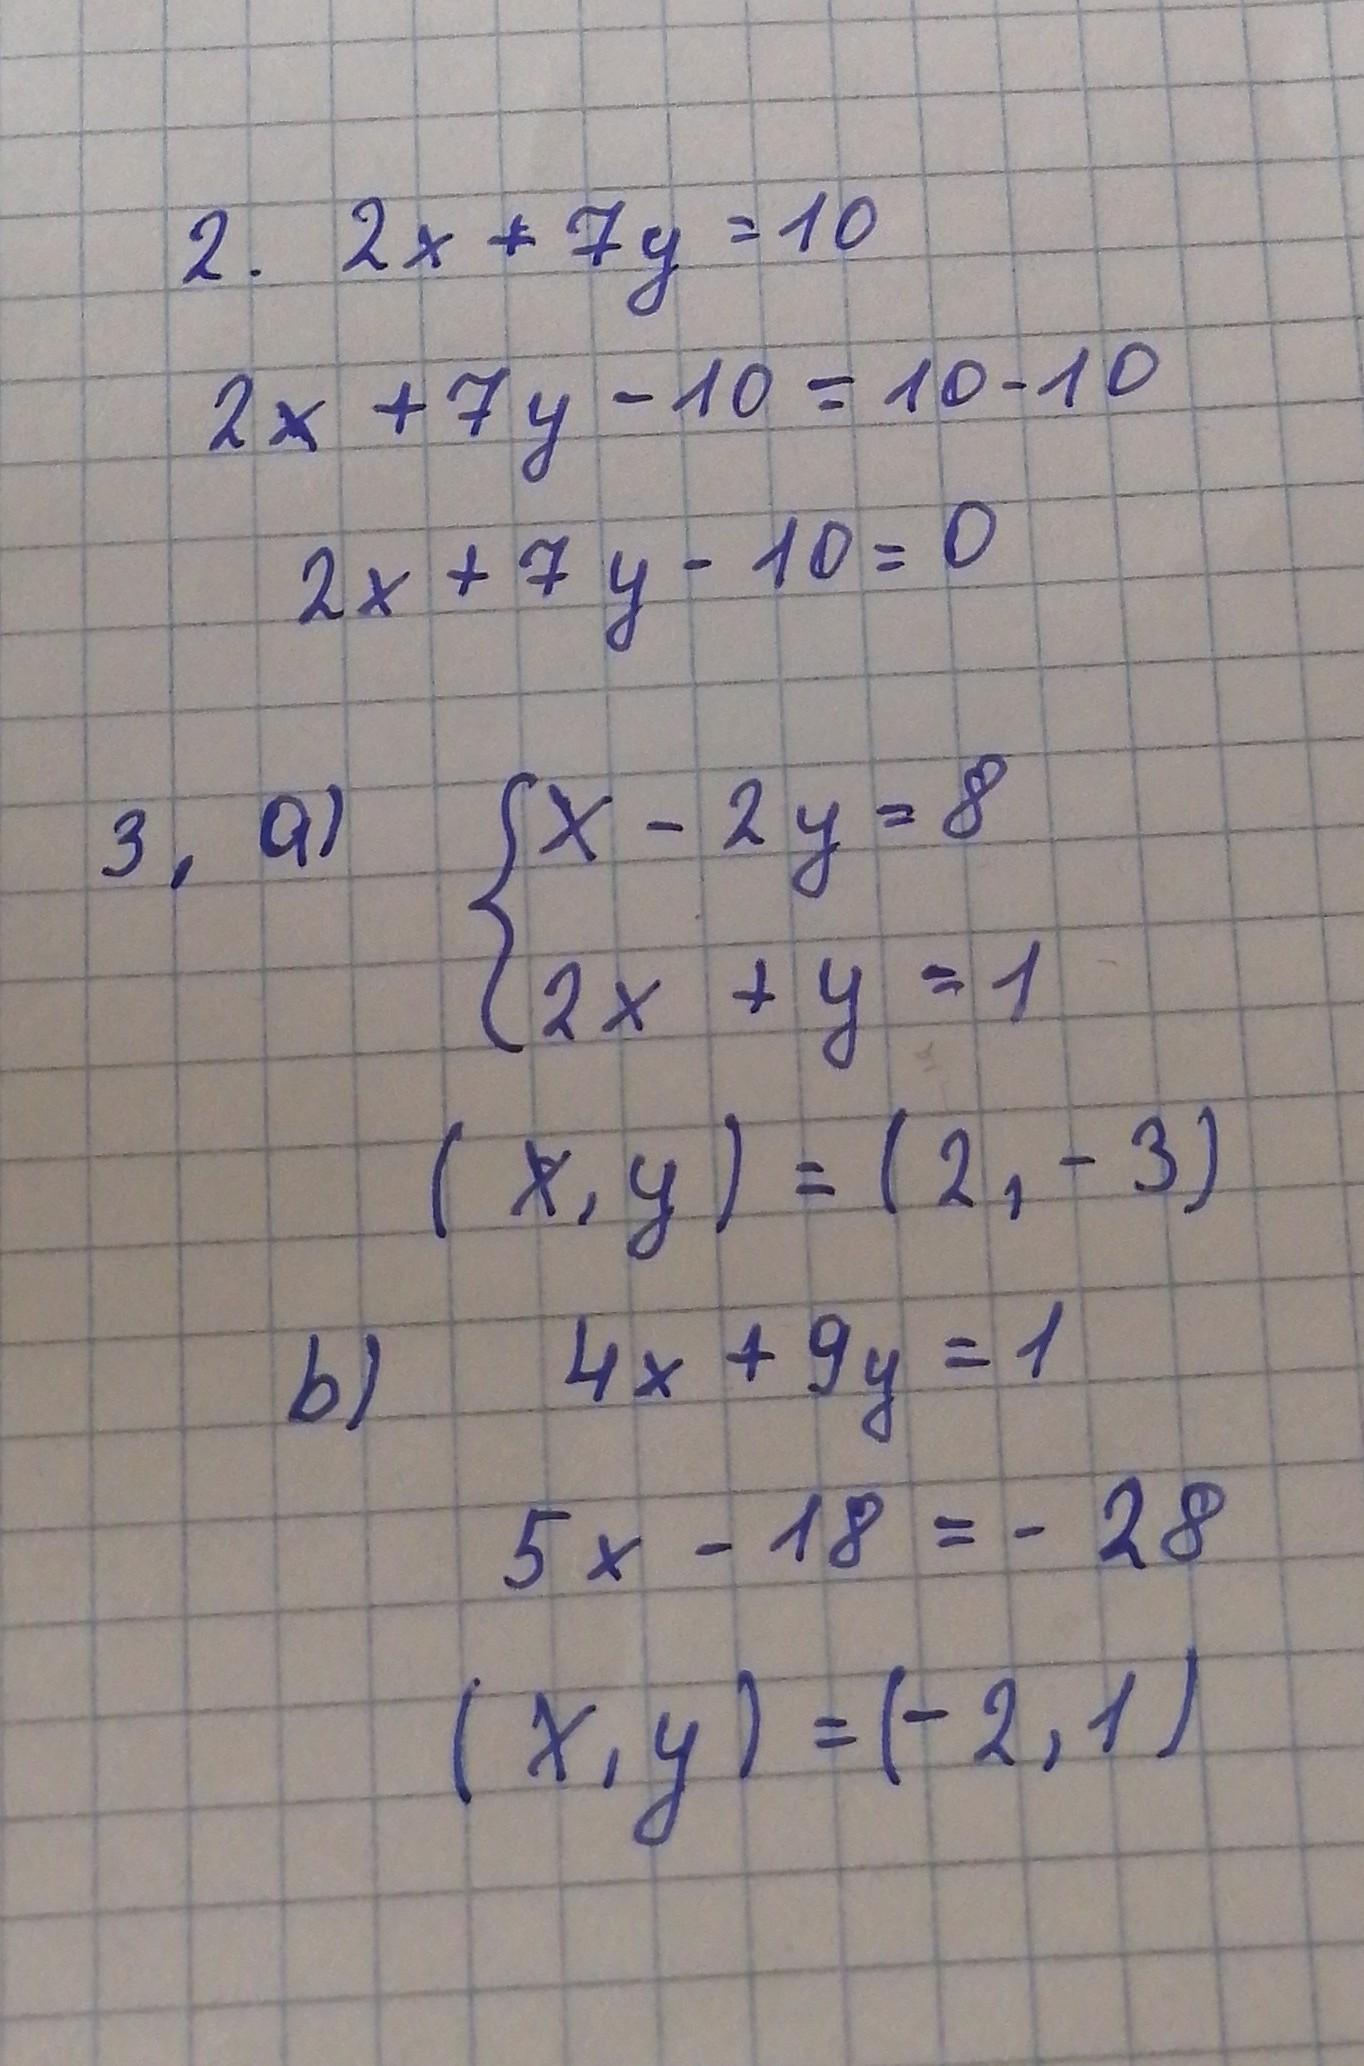 2. 2x + 7y = 10
2x + 7y - 10 = 10 - 10
2x + 7y - 10 = 0
3, a) { x - 2y = 8
2x + y = 1
(x, y) = (2, -3)
b) 4x + 9y = 1
5x - 18 = - 28
(x, y) = (-2, 1)